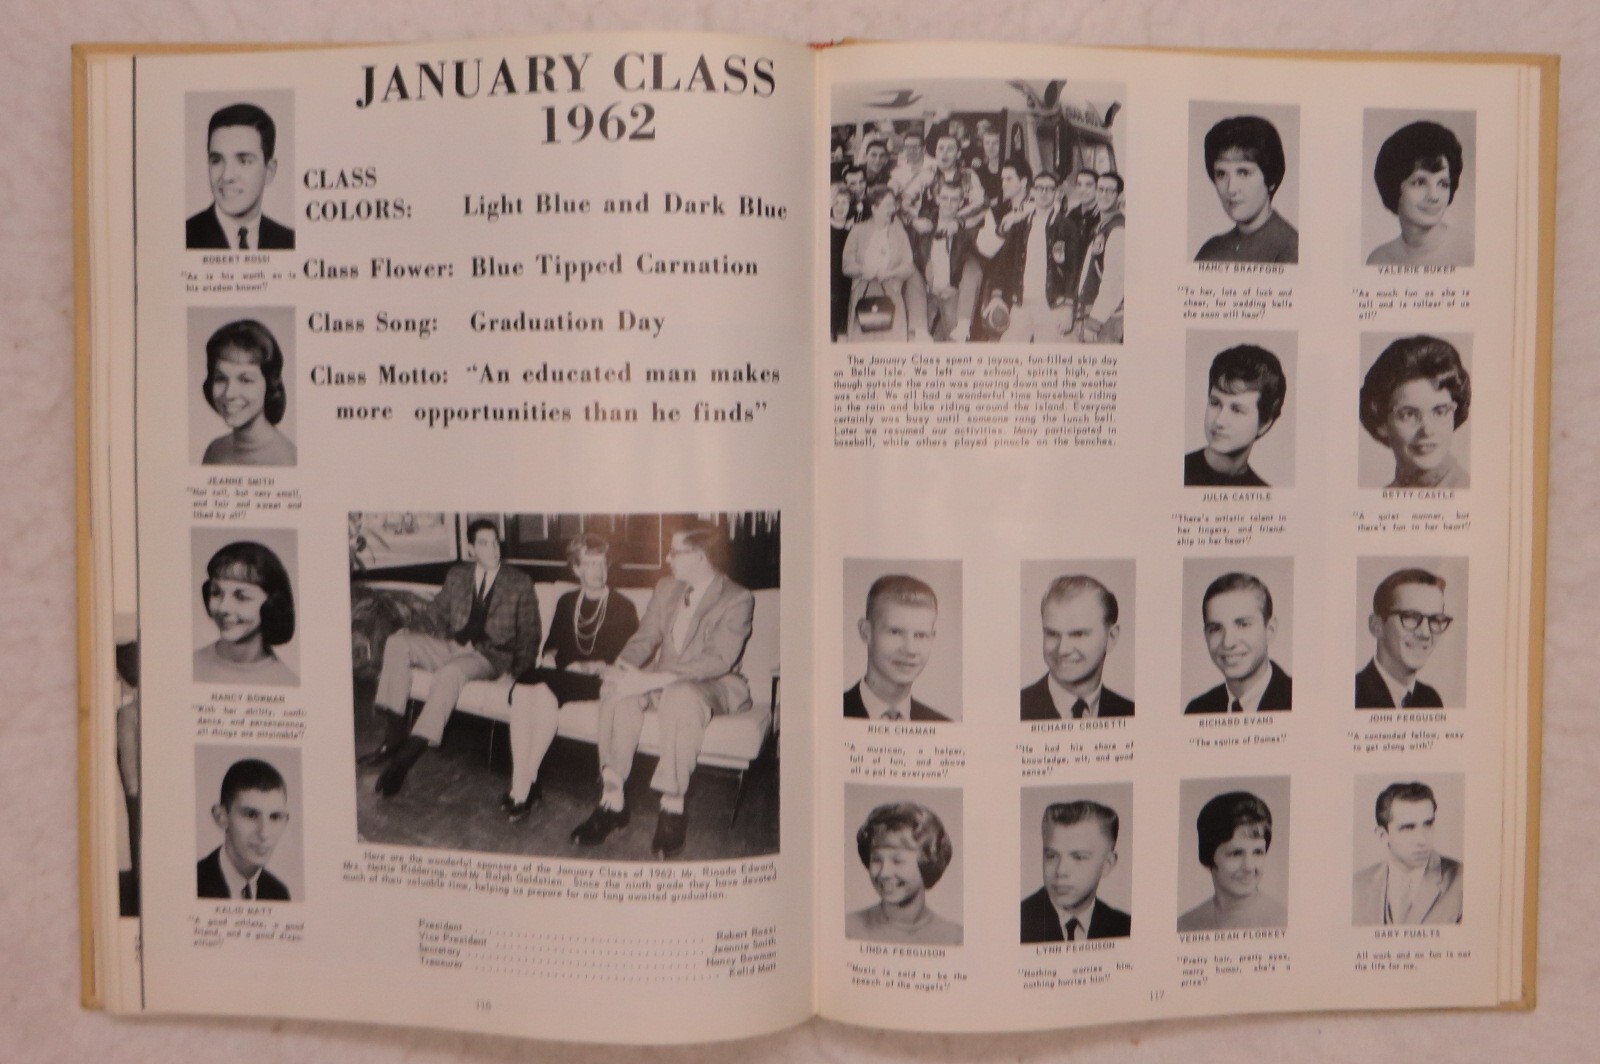 JANUARY CLASS
1962
CLASS
COLORS: Light Blue and Dark Blue
Class Flower: Blue Tipped Carnation
Class Song: Graduation Day
Class Motto: "An educated man makes
more opportunities than he finds"
ROBERT ROSSI
"As is his worth so is
his wisdom known"
JEANNE SMITH
"Not tall, but very small,
and fair and sweet and
liked by all"
NANCY BOWMAN
"With her ability, confi-
dence, and perseverance,
all things are attainable"
KALID MATT
"A good athlete, a good
friend, and a good dispo-
sition"
Here are the wonderful sponsors of the January Class of 1962: Mr. Rinaldo Edward,
Mrs. Nettie Kiddering, and Mr. Ralph Goldstien. Since the ninth grade they have devoted
much of their valuable time, helping us prepare for our long awaited graduation.
President Robert Rossi
Vice President Jeannie Smith
Secretary Nancy Bowman
Treasurer Kalid Matt
116
The January Class spent a joyous, fun-filled skip day
on Belle Isle. We left our school, spirits high, even
though outside the rain was pouring down and the weather
was cold. We all had a wonderful time horseback riding
in the rain and bike riding around the island. Everyone
certainly was busy until someone rang the lunch bell.
Later we resumed our activities. Many participated in
baseball, while others played pinacle on the benches.
NANCY BRAFFORD
"To her, lots of luck and
cheer, for wedding bells
she soon will hear"
VALERIE BUKER
"As much fun as she is
tall and is tallest of us
all"
JULIA CASTILE
"There's artistic talent in
her fingers, and friend-
ship in her heart"
BETTY CASTLE
"A quiet manner, but
there's fun in her heart"
RICK CHAMAN
"A musician, a helper,
full of fun, and above
all a pal to everyone"
RICHARD CROSETTI
"He had his share of
knowledge, wit, and good
sense"
RICHARD EVANS
"The squire of Dames"
JOHN FERGUSON
"A contended fellow, easy
to get along with"
LINDA FERGUSON
"Music is said to be the
speech of the angels"
LYNN FERGUSON
"Nothing worries him,
nothing hurries him"
VERNA DEAN FLORKEY
"Pretty hair, pretty eyes,
merry humor, she's a
prize"
GARY FUALTS
All work and no fun is not
the life for me.
117